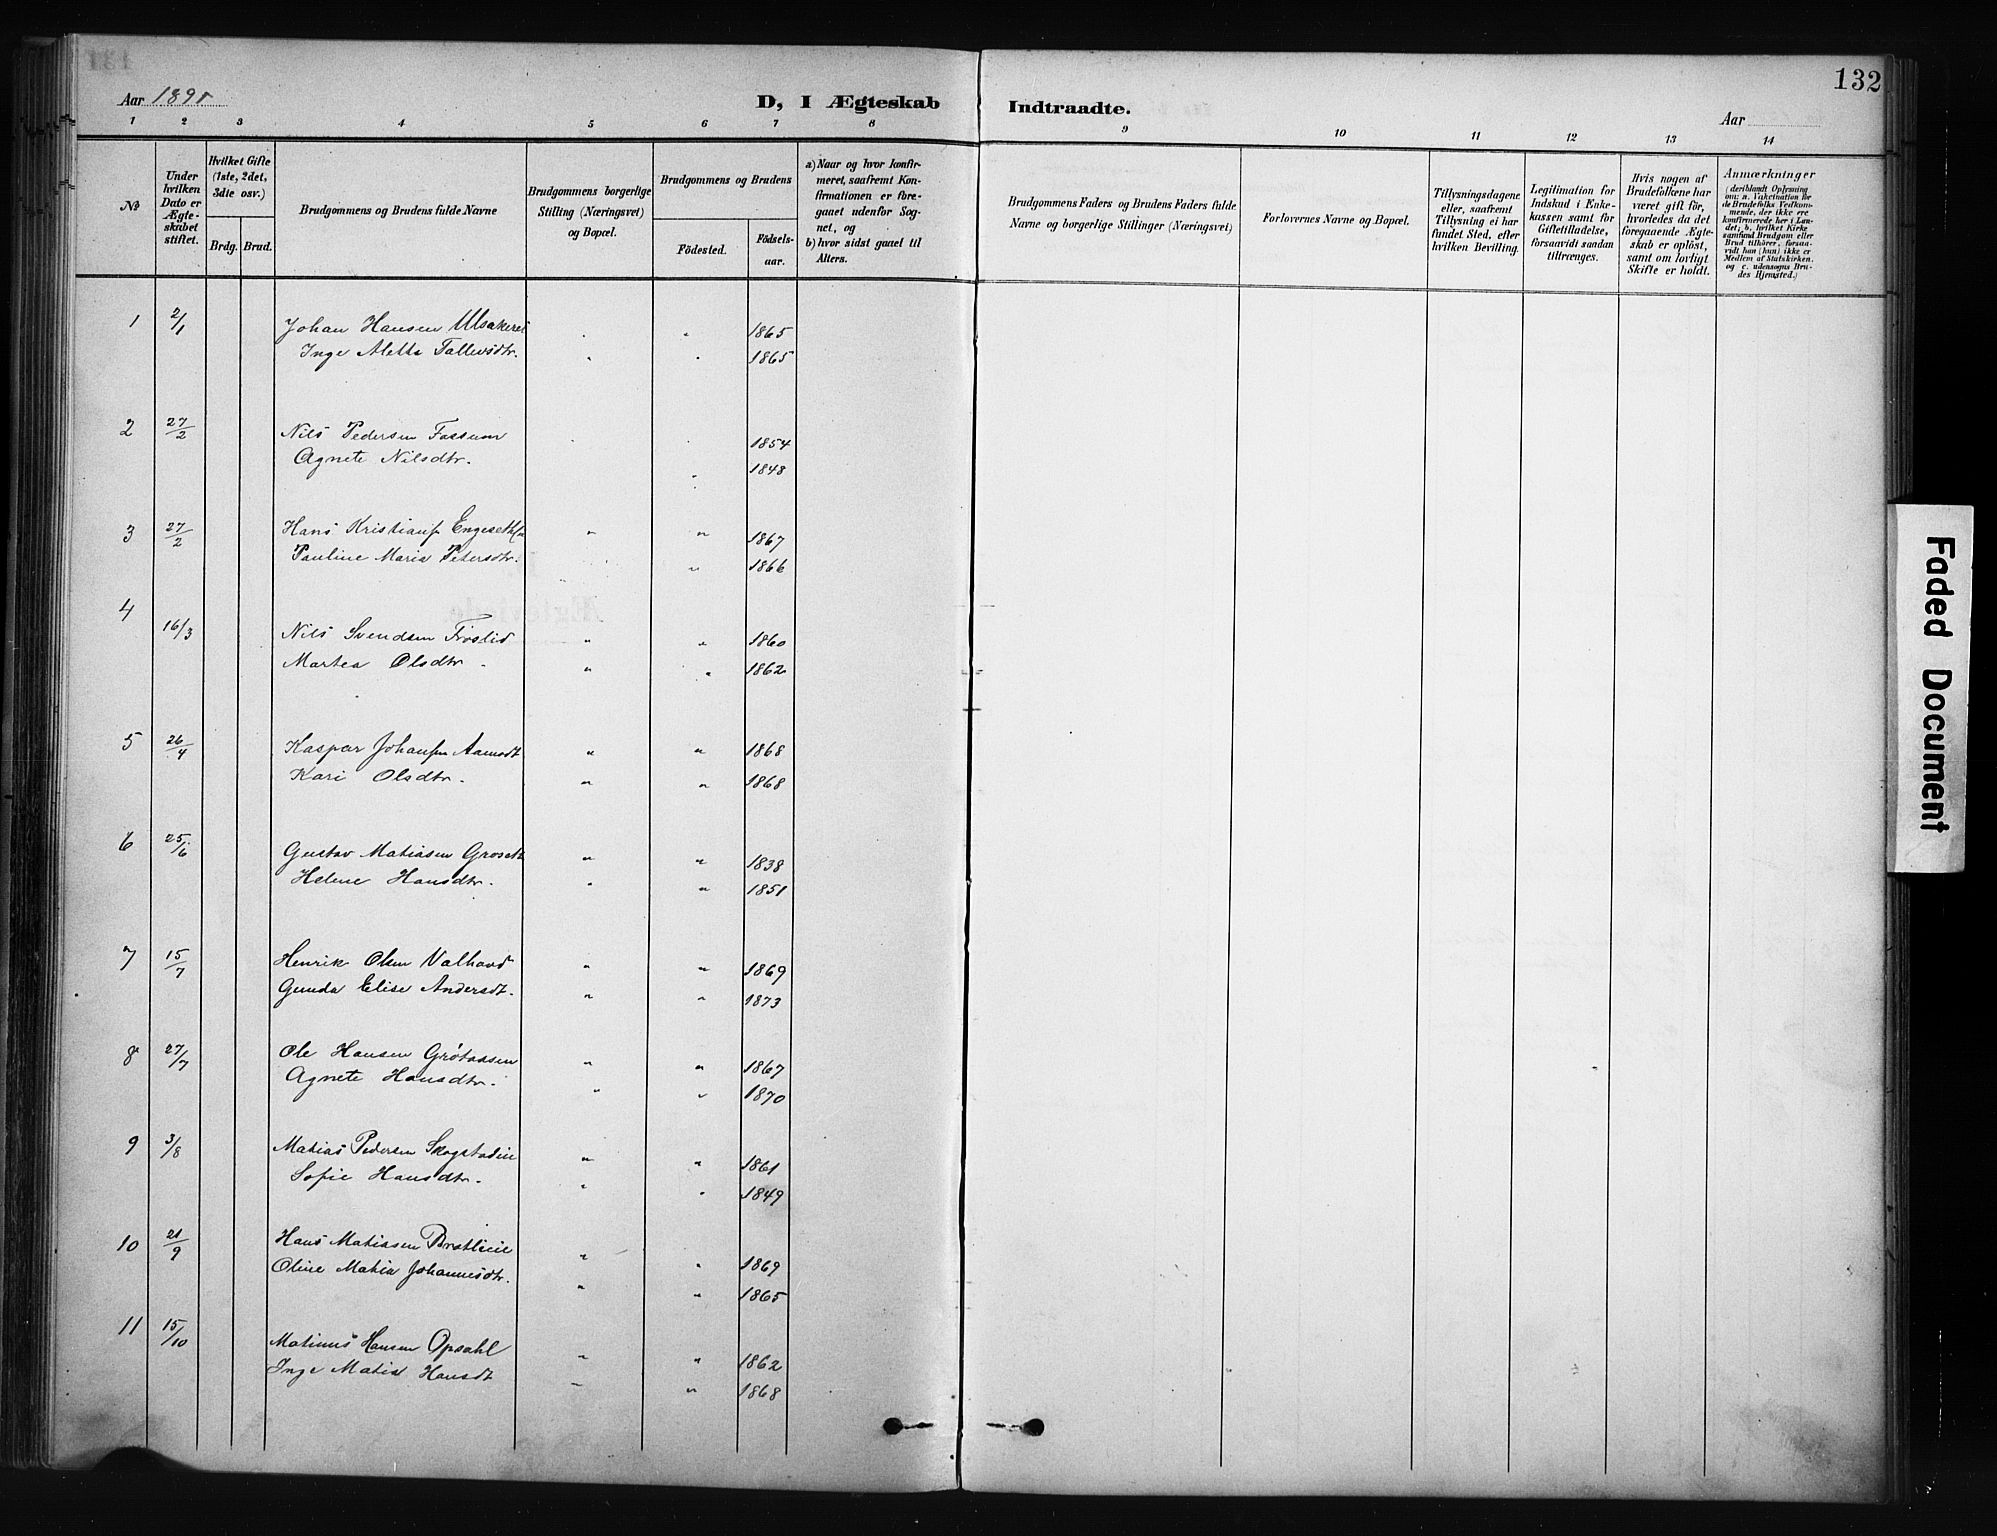 132
Aar 1891
D, I Ægteskab
Indtraadte.
Aar
1 2 3 4 5 6 7 8 9 10 11 12 13 14
№
Under
hvilken
Dato er
Ægte-
skabet
stiftet.
Hvilket Gifte
(1ste, 2det,
3die osv.)
Brdg. Brud.
Brudgommens og Brudens fulde Navne
Brudgommens borgerlige
Stilling (Næringsvei)
og Bopæl.
Brudgommens og Brudens
Fødested.
Fødsels-
aar.
a) Naar og hvor konfir-
meret, saafremt Kon-
firmationen er fore-
gaaet udenfor Sog-
net, og
b) hvor sidst gaaet til
Alters.
Brudgommens Faders og Brudens Faders fulde
Navne og borgerlige Stillinger (Næringsvei)
Forlovernes Navne og Bopæl.
Tillysningsdagene
eller, saafremt
Tillysning ei har
fundet Sted, efter
hvilken Bevilling.
Legitimation for
Indskud i Enke-
kassen samt for
Giftetilladelse,
forsaavidt saadan
tiltrænges.
Hvis nogen af
Brudefolkene har
været gift før,
hvorledes da det
foregaaende Ægte-
skab er opløst,
samt om lovligt
Skifte er holdt.
Anmærkninger
(deriblandt Oplysning
om: a. Vakcination for
de Brudefolks Vedkom-
mende, der ikke ere
konfirmerede her i Lan-
det; b. hvilket Kirke
samfund Brudgom eller
Brud tilhører, forsaa-
vidt han (hun) ikke er
Medlem af Statskirken.
og c. udensogns Bru-
des Hjemsted.)
1 2/1 Johan Hansen Ulsakerei " 1865
Inge Aletta Tollevsdtr. " " 1865
2 27/2 Nils Pedersen Fossum 1854
Agnete Nilsdtr. " 1848
3 27/2 Hans Kristians. " " 1867
Pauline Maria Petersdtr. " 1866
4 16/3 Nils Svendsen Frøslid " " 1860
Martea Olsdtr. " " 1862
5 26/4 Kaspar Johansen Aamodt " " 1868
Kari Olsdtr. " " 1868
6 25/6 Gustav Matiasen Groseth " " 1838
Helene Hansdtr. " " 1851
7 15/7 Henrik Olsen Valhovd " " 1869
Gunda Elise Andersdt. " " 1873
8 27/7 Ole Hansen Grøtaasen " " 1867
Agnete Hansdtr. " " 1870
9 3/8 Matias Pedersen Skogstadeie " " 1861
Sofie Hansdtr. " " 1849
10 21/9 Hans Matiasen " " 1869
Oline Matia Johannesdtr. " " 1865
11 15/10 Matinus Hansen Opsahl " " 1862
Inge Matia Hansdt " " 1868
Faded Document